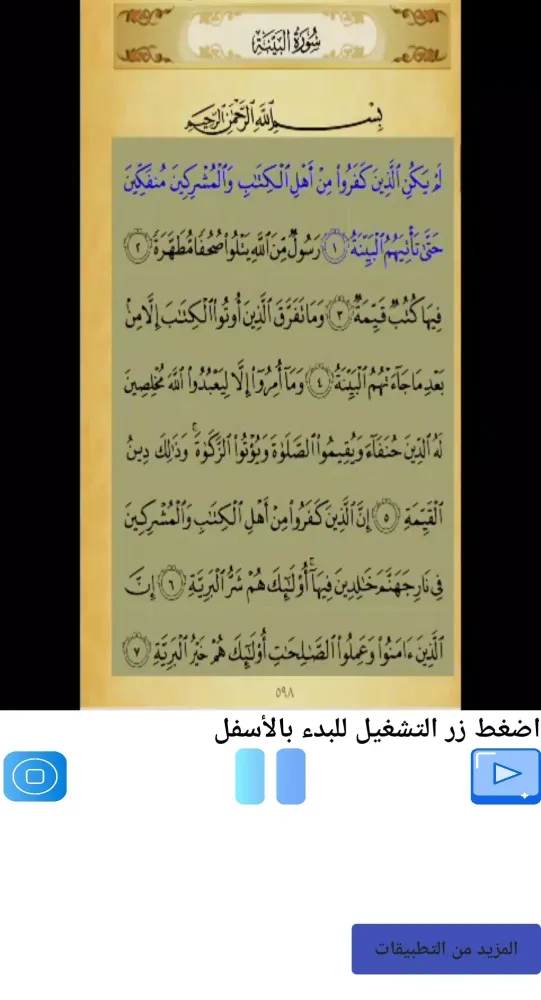 سُورَةُ الْبَيِّنَةِ
بِسْمِ ٱللَّهِ ٱلرَّحْمَٰنِ ٱلرَّحِيمِ
لَمْ يَكُنِ ٱلَّذِينَ كَفَرُوا۟ مِنْ أَهْلِ ٱلْكِتَٰبِ وَٱلْمُشْرِكِينَ مُنفَكِّينَ
حَتَّىٰ تَأْتِيَهُمُ ٱلْبَيِّنَةُ ١ رَسُولٌ مِّنَ ٱللَّهِ يَتْلُوا۟ صُحُفًا مُّطَهَّرَةً ٢
فِيهَا كُتُبٌ قَيِّمَةٌ ٣ وَمَا تَفَرَّقَ ٱلَّذِينَ أُوتُوا۟ ٱلْكِتَٰبَ إِلَّا مِنۢ
بَعْدِ مَا جَآءَتْهُمُ ٱلْبَيِّنَةُ ٤ وَمَآ أُمِرُوٓا۟ إِلَّا لِيَعْبُدُوا۟ ٱللَّهَ مُخْلِصِينَ
لَهُ ٱلدِّينَ حُنَفَآءَ وَيُقِيمُوا۟ ٱلصَّلَوٰةَ وَيُؤْتُوا۟ ٱلزَّكَوٰةَ ۚ وَذَٰلِكَ دِينُ
ٱلْقَيِّمَةِ ٥ إِنَّ ٱلَّذِينَ كَفَرُوا۟ مِنْ أَهْلِ ٱلْكِتَٰبِ وَٱلْمُشْرِكِينَ
فِى نَارِ جَهَنَّمَ خَٰلِدِينَ فِيهَآ ۚ أُو۟لَٰٓئِكَ هُمْ شَرُّ ٱلْبَرِيَّةِ ٦ إِنَّ
ٱلَّذِينَ ءَامَنُوا۟ وَعَمِلُوا۟ ٱلصَّٰلِحَٰتِ أُو۟لَٰٓئِكَ هُمْ خَيْرُ ٱلْبَرِيَّةِ ٧
٥٩٨
اضغط زر التشغيل للبدء بالأسفل
المزيد من التطبيقات